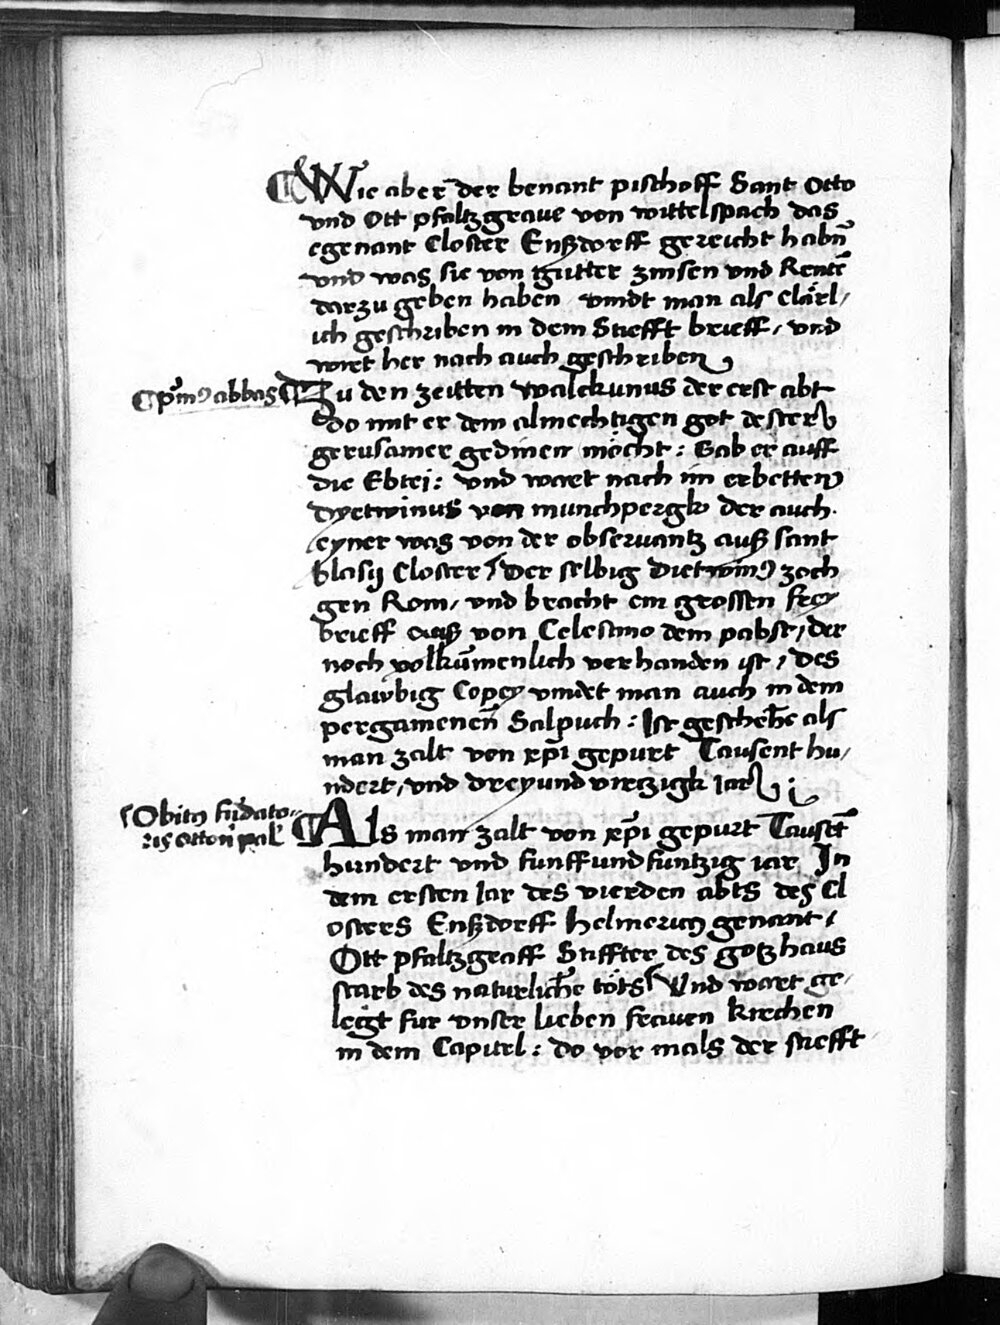 Wie aber der benant pischoff Sant Otto
vnd Ott pfaltzgraue von wittelspach das
egenant Closter Enßdorff gereicht habñ
vnd was sie von gutter zinsen vnd Rentẽ
darzu geben haben vindt man als clärl/
ich geschriben in dem Stifft brieff/ vnd
wirt her nach auch geschriben
p̃mꝰ abbas
Zu den zeitten walckunus der erst abt
do mit er dem almechtigen got dester
gerusamer gedinen möcht: Gab er auff
die Ebtei: vnd wart nach im erbetten
dyetwinus von munchpergk der auch
eyner was von der obseruantz auß sant
blasij Closter/ Der selbig dietwinꝰ zoch
gen Rom/ vnd bracht ein grossen frey
brieff auß von Celestino dem pabst/ der
noch volkũmenlich verhanden ist/ Des
glawbig Copey vindet man auch in dem
pergamenen̄ Salpuch: Ist geschehẽ als
man zalt von xp̃i gepurt Tausent hu/
ndert/ vnd dreyundvirtzigk Iar
Obitꝰ fũdato-
ris ottoñ pal
Als man zalt von xp̃i gepurt Tausẽt
hundert vnd funffundfuntzig iar In
dem ersten Iar des vierden abts des Cl
osters Enßdorff helmericꝰ genant/
Ott pfaltzgraff Stiffter des gotzhaus
starb des naturlichẽ töts/ Vnd wart ge/
legt fur vnser lieben frawen kirchen
in dem Capitel: do vor mals der stifft